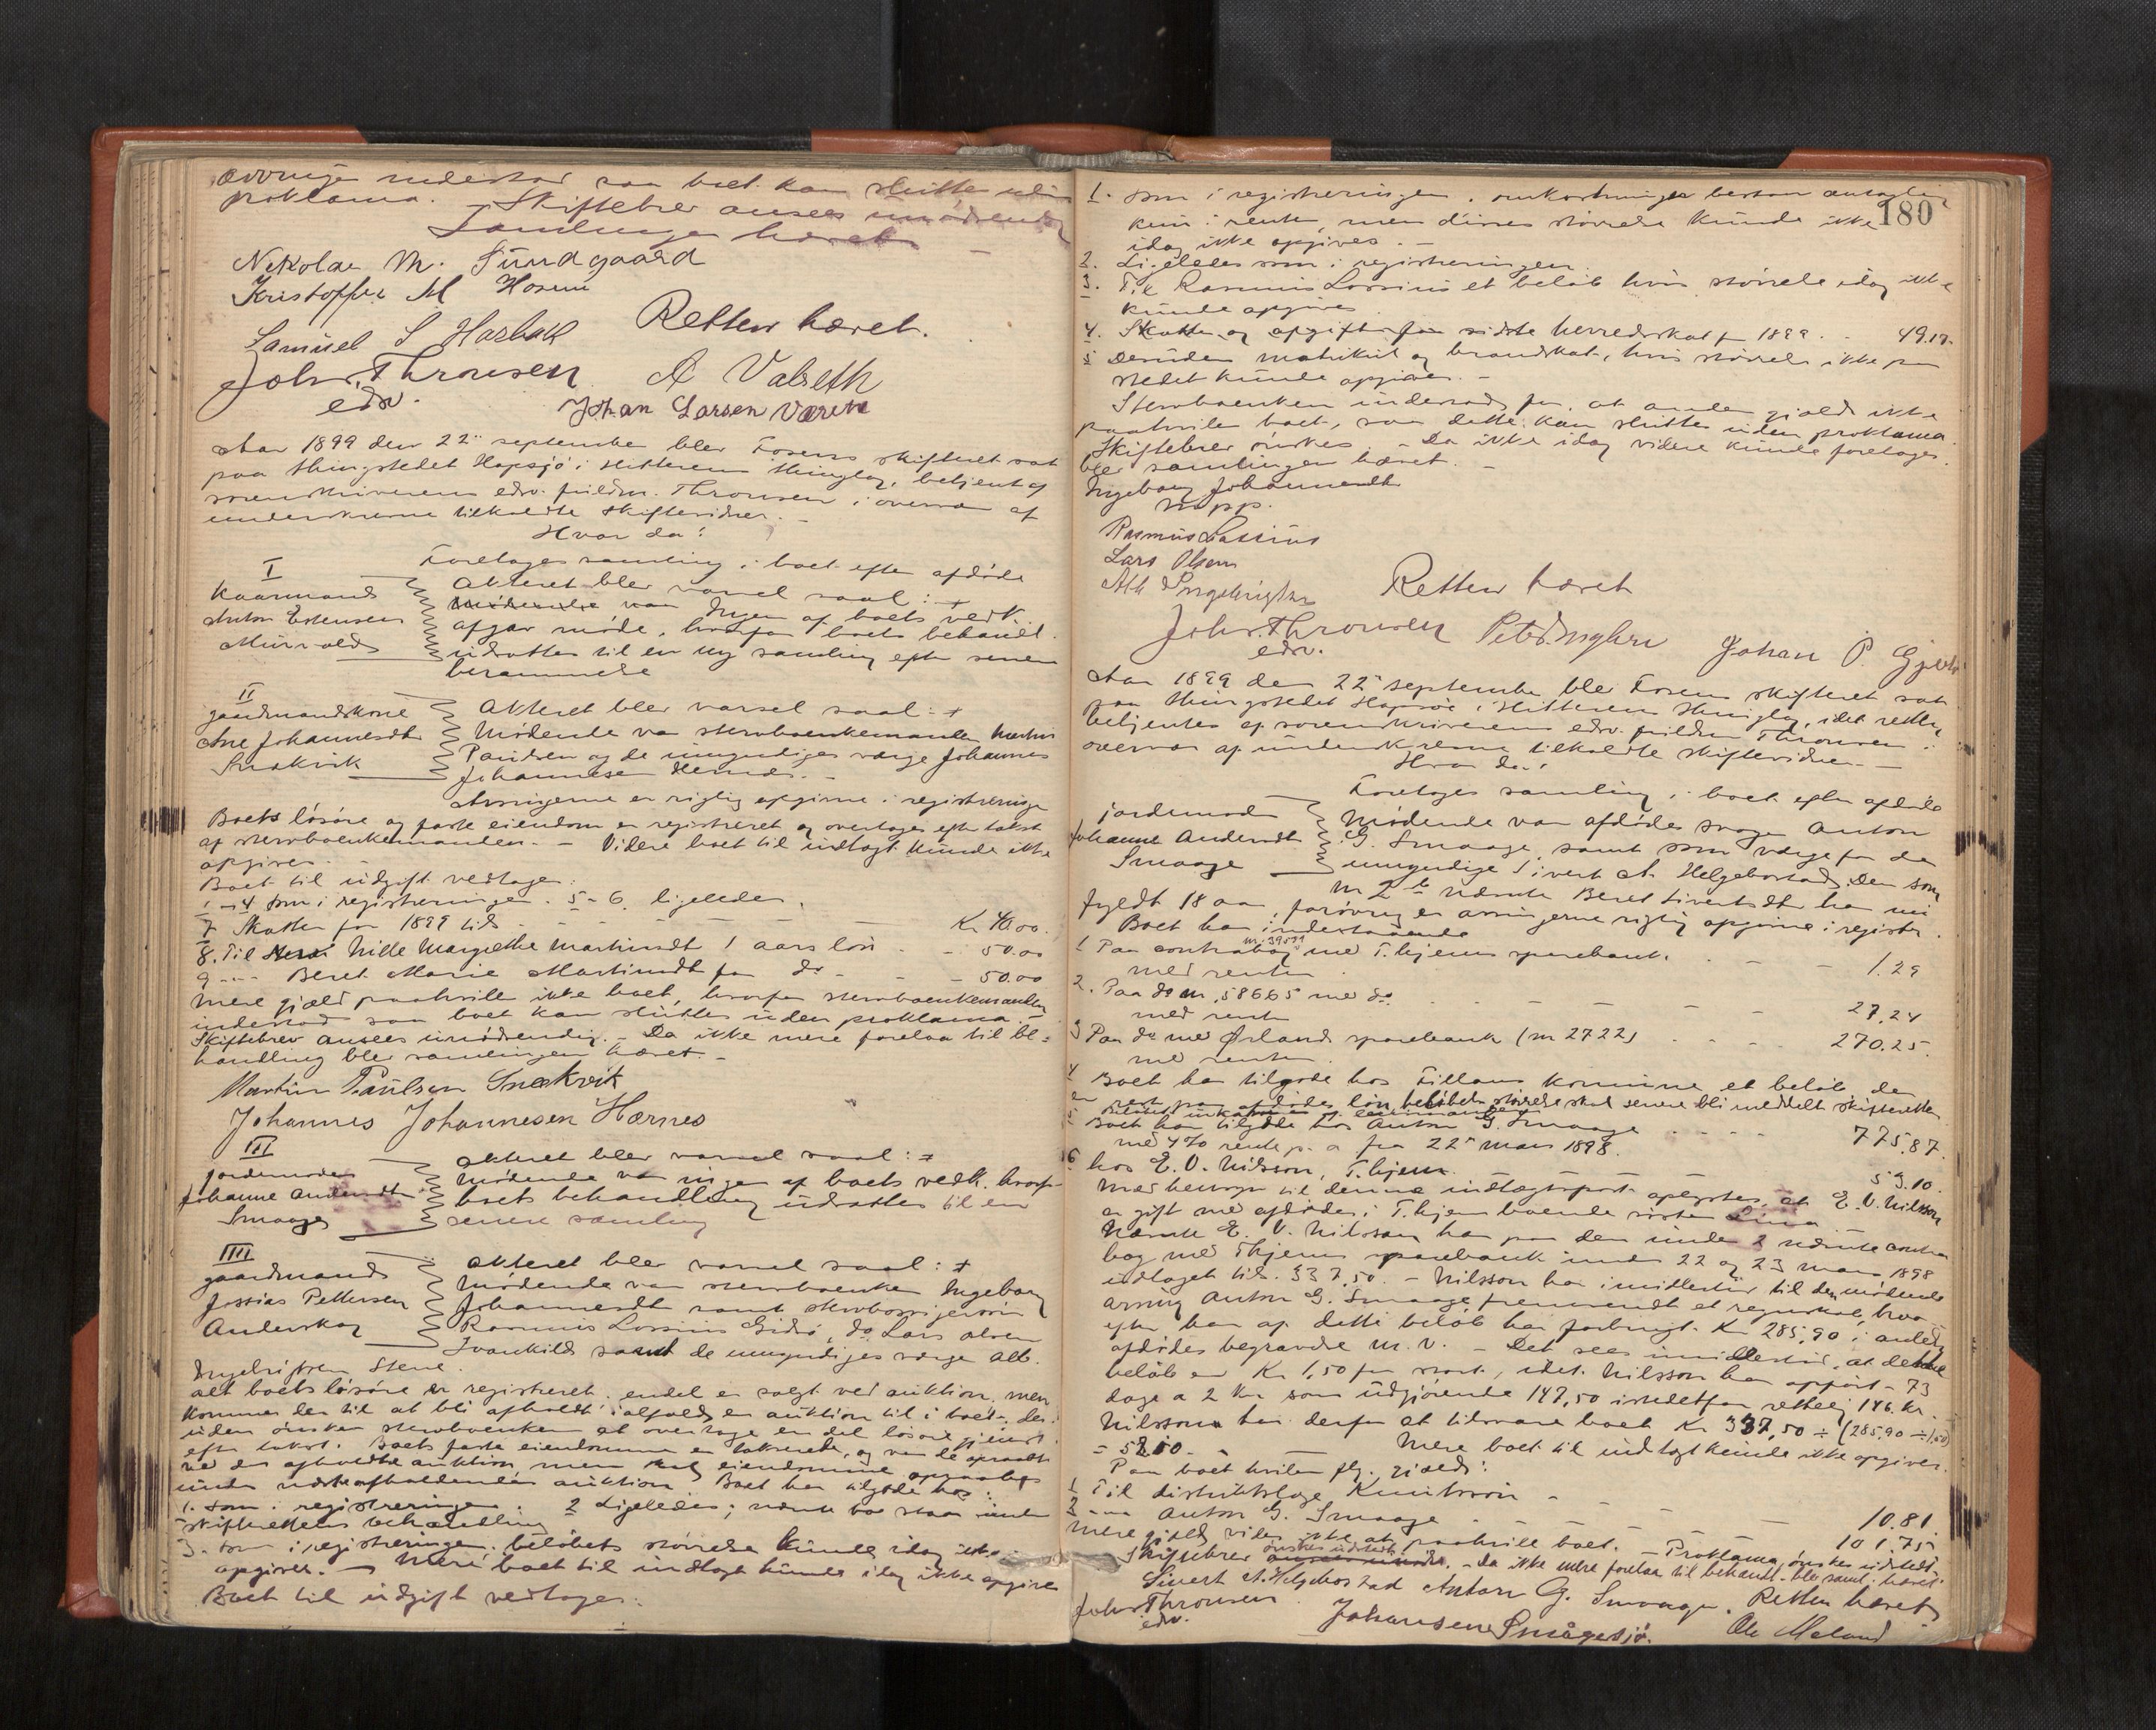 øvrige indestod saa boet kan sluttes uden
proklama. – Skiftebrev ansees unødvendig
Samlingen hævet. –
Nikolai M. Sundgaard
Kristoffer M Hosen
Samuel S Hasbak Retten hævet.
Johs. Thronsen A Valseth
edsv. Johan Larsen Værnes
Aar 1899 den 22' september blev Fosens skifteret sat
paa thingstedet Hopsjø i Hitterens thinglag, betjent af
sorenskriverens edsv. fuldm. Thronsen i overvær af
underskrevne tilkaldte skiftevidner. –
Hvor da:
Foretages samling i boet efter afdøde
I
Kaarmand
Anton Estensen
Akteret blev varsel saal: +
Mødende var Ingen af boets vedk.
afgav møde, hvorfor boets behandl.
udsattes til en ny samling efter senere
berammelse
II
gaardmandskone
Ane Johannesdt
Snekvik
Akteret blev varsel saal: +
Mødende var sterboenkemanden Martin
Paulsen og de umyndiges værge Johannes
Johannesen Hernes. –
Arvingerne er rigtig opgivne i registreringen
Boets løsøre og faste eiendom er registreret og overtages efter takst
af sterboenkemanden. – Videre boet til indtægt kunde ikke
opgives. –
Boet til udgift vedtages:
1-4 som i registreringen. 5-6 ligeledes.
7 Skatter for 1899 tils - - - - Kr. 40.00.
8. Til Nille Margrethe Martinsdt 1 aars løn - - 50.00
9 --- Beret Marie Martinsdt for do - - - 50.00
Mere gjæld paahviler ikke boet, hvorfor sterboenkemanden
indestod saa boet kan sluttes uden proklama. –
Skiftebrev ansees unødvendig. – Da ikke mere forelaa til be-
handling blev samlingen hævet. –
Martin Paulsen Snekvik
Johannes Johannesen Hærnes
III
Jordemoder
Johanne Andersdt
Smaage
Akteret blev varsel saal: +
Mødende var ingen af boets vedk. hvorfor
boets behandling udsattes til en
senere samling
IIII
gaardmand
Jossias Pettersen
Anderskog
Akteret blev varsel saal: +
Mødende var sterboenken Ingeborg
Johannesdt samt sterbosvigersøn
Rasmus Lossius Gidsø, do Lars Olsen
samt de umyndiges værge Alb.
Ingebrigtsen Stene.
Alt boets løsøre er registreret. endel er solgt ved auktion, men
kommer der til at bli afholdt ialfald en auktion til i boet, des-
uden ønsker sterboenken at overtage en del løsøre
efter takst. Boets faste eiendomme er takserede, og var de opraabt
ved den afholdte auktion, men skal eiendommene opraabes
under næste afholdende auktion. Boet har tilgode hos:
1. som i registreringen. 2 Ligeledes; nævnte bo staar under
skifterettens behandling
3. som i registreringen, beløbets størrelse kunde idag ikke
opgives. – Mere boet til indtægt kunde idag ikke opgives
Boet til udgift vedtages:
180
1. som i registreringen. omkostninger bestaar antagelig
kun i renter, men disses størrelse kunde ikke
idag ikke opgives. –
2. Ligeledes som i registreringen.
3. Til Rasmus Lossius et beløb hvis størrelse idag ikke
kunde opgives
4. Skatter og afgifter for sidste herredsskat for 1899. - 49.17.
5 Desuden matrikul og brandskat, hvis størrelse ikke paa
stedet kunde opgives. –
Sterboenken indestod for, at anden gjæld ikke
paahviler boet, saa dette kan sluttes uden proklama.
Skiftebrev ønskes. – Da ikke idag videre kunde foretages
blev samlingen hævet. –
Ingeborg Johannesdt
m. p. p.
Rasmus Lossius
Lars Olsen
Alb Ingebrigtsen Retten hævet
Johs. Thronsen Johan P.
edsv.
Aar 1899 den 22' september blev Fosens skifteret sat
paa thingstedet Hopsjøe i Hitterens thinglag, idet retten
betjentes af sorenskriverens edsv. fuldm Thronsen i
overvær af underskrevne tilkaldte skiftevidner. –
Hvor da:
Foretages samling i boet efter afdøde
jordemoder
Johanne Andersdt
Smaage
Mødende var afdødes svoger Anton
G. Smaage, samt som værge for den
umyndige Sivert A. Helgebostad. Den som
nr 2 b nævnte Beret Sivertsdt har nu
fyldt 18 aar, forøvrig er arvingerne rigtig opgivne i registr.
Boet har indestaaende
1 Paa contrabog nr. 39599 med T.hjems sparebank. - - - 1.29
med renter
2. Paa do nr. 58665 med do - - - - 27.24
med renter
3 Paa do med Ørlands sparebank (nr 2722) - - - - 270.25.
med renter
4 Boet har tilgode hos Fillans kommune et beløb der
er rest paa afdødes løn, beløbets størrelse skal senere bli meddelt skifteretten
5 Boet har tilgode hos Anton G. Smaage - - - - 775.87.
med 4% rente p. a fra 22' mars 1898.
6 hos E. V. Nilsson, T.hjem. 53.10.
Med hensyn til denne indtægtspost oplystes, at E. V. Nilsson
er gift med afdødes i T.hjem boende søster
Nævnte E. V. Nilsson har paa den under 2 nævnte contra
bog med Thjems sparebank under 22 og 23 mars 1898
udtaget tils. 337,50. – Nilsson har imidlertid til den mødende
arving Anton G. Smaage fremsendt et regnskab, hvor-
efter han af dette beløb har forbrugt Kr 285,90 i anledn.
afdødes begravelse m. v. – Det sees imidlertid, at dette
beløb er Kr 1,50 for stort, idet Nilsson har opført - 73
dage a 2 Kr som udgjørende 147,50 istedetfor rettelig 146 kr.
Nilsson har derfor at tilsvare boet Kr 337,50 ÷ (285,90 ÷ 1,50)
= Mere boet til indtægt kunde ikke opgives.
Paa boet hviler flg. gjæld:
1 Til distriktslæge Knutssøn - - - - 10.81.
2 --- Anton G. Smaage - - - - 101.75
Mere gjæld vides ikke at paahvile boet. – Proklama ønskes udstedt.
Skiftebrev ønskes udstedt. – Da ikke mere forelaa til behandl. blev saml. hævet.
Sivert A. Helgebostad Antorn G. Smaage. Retten hævet
Johs Thronsen Johansen Smågesjø. Ole Meland
edsv.